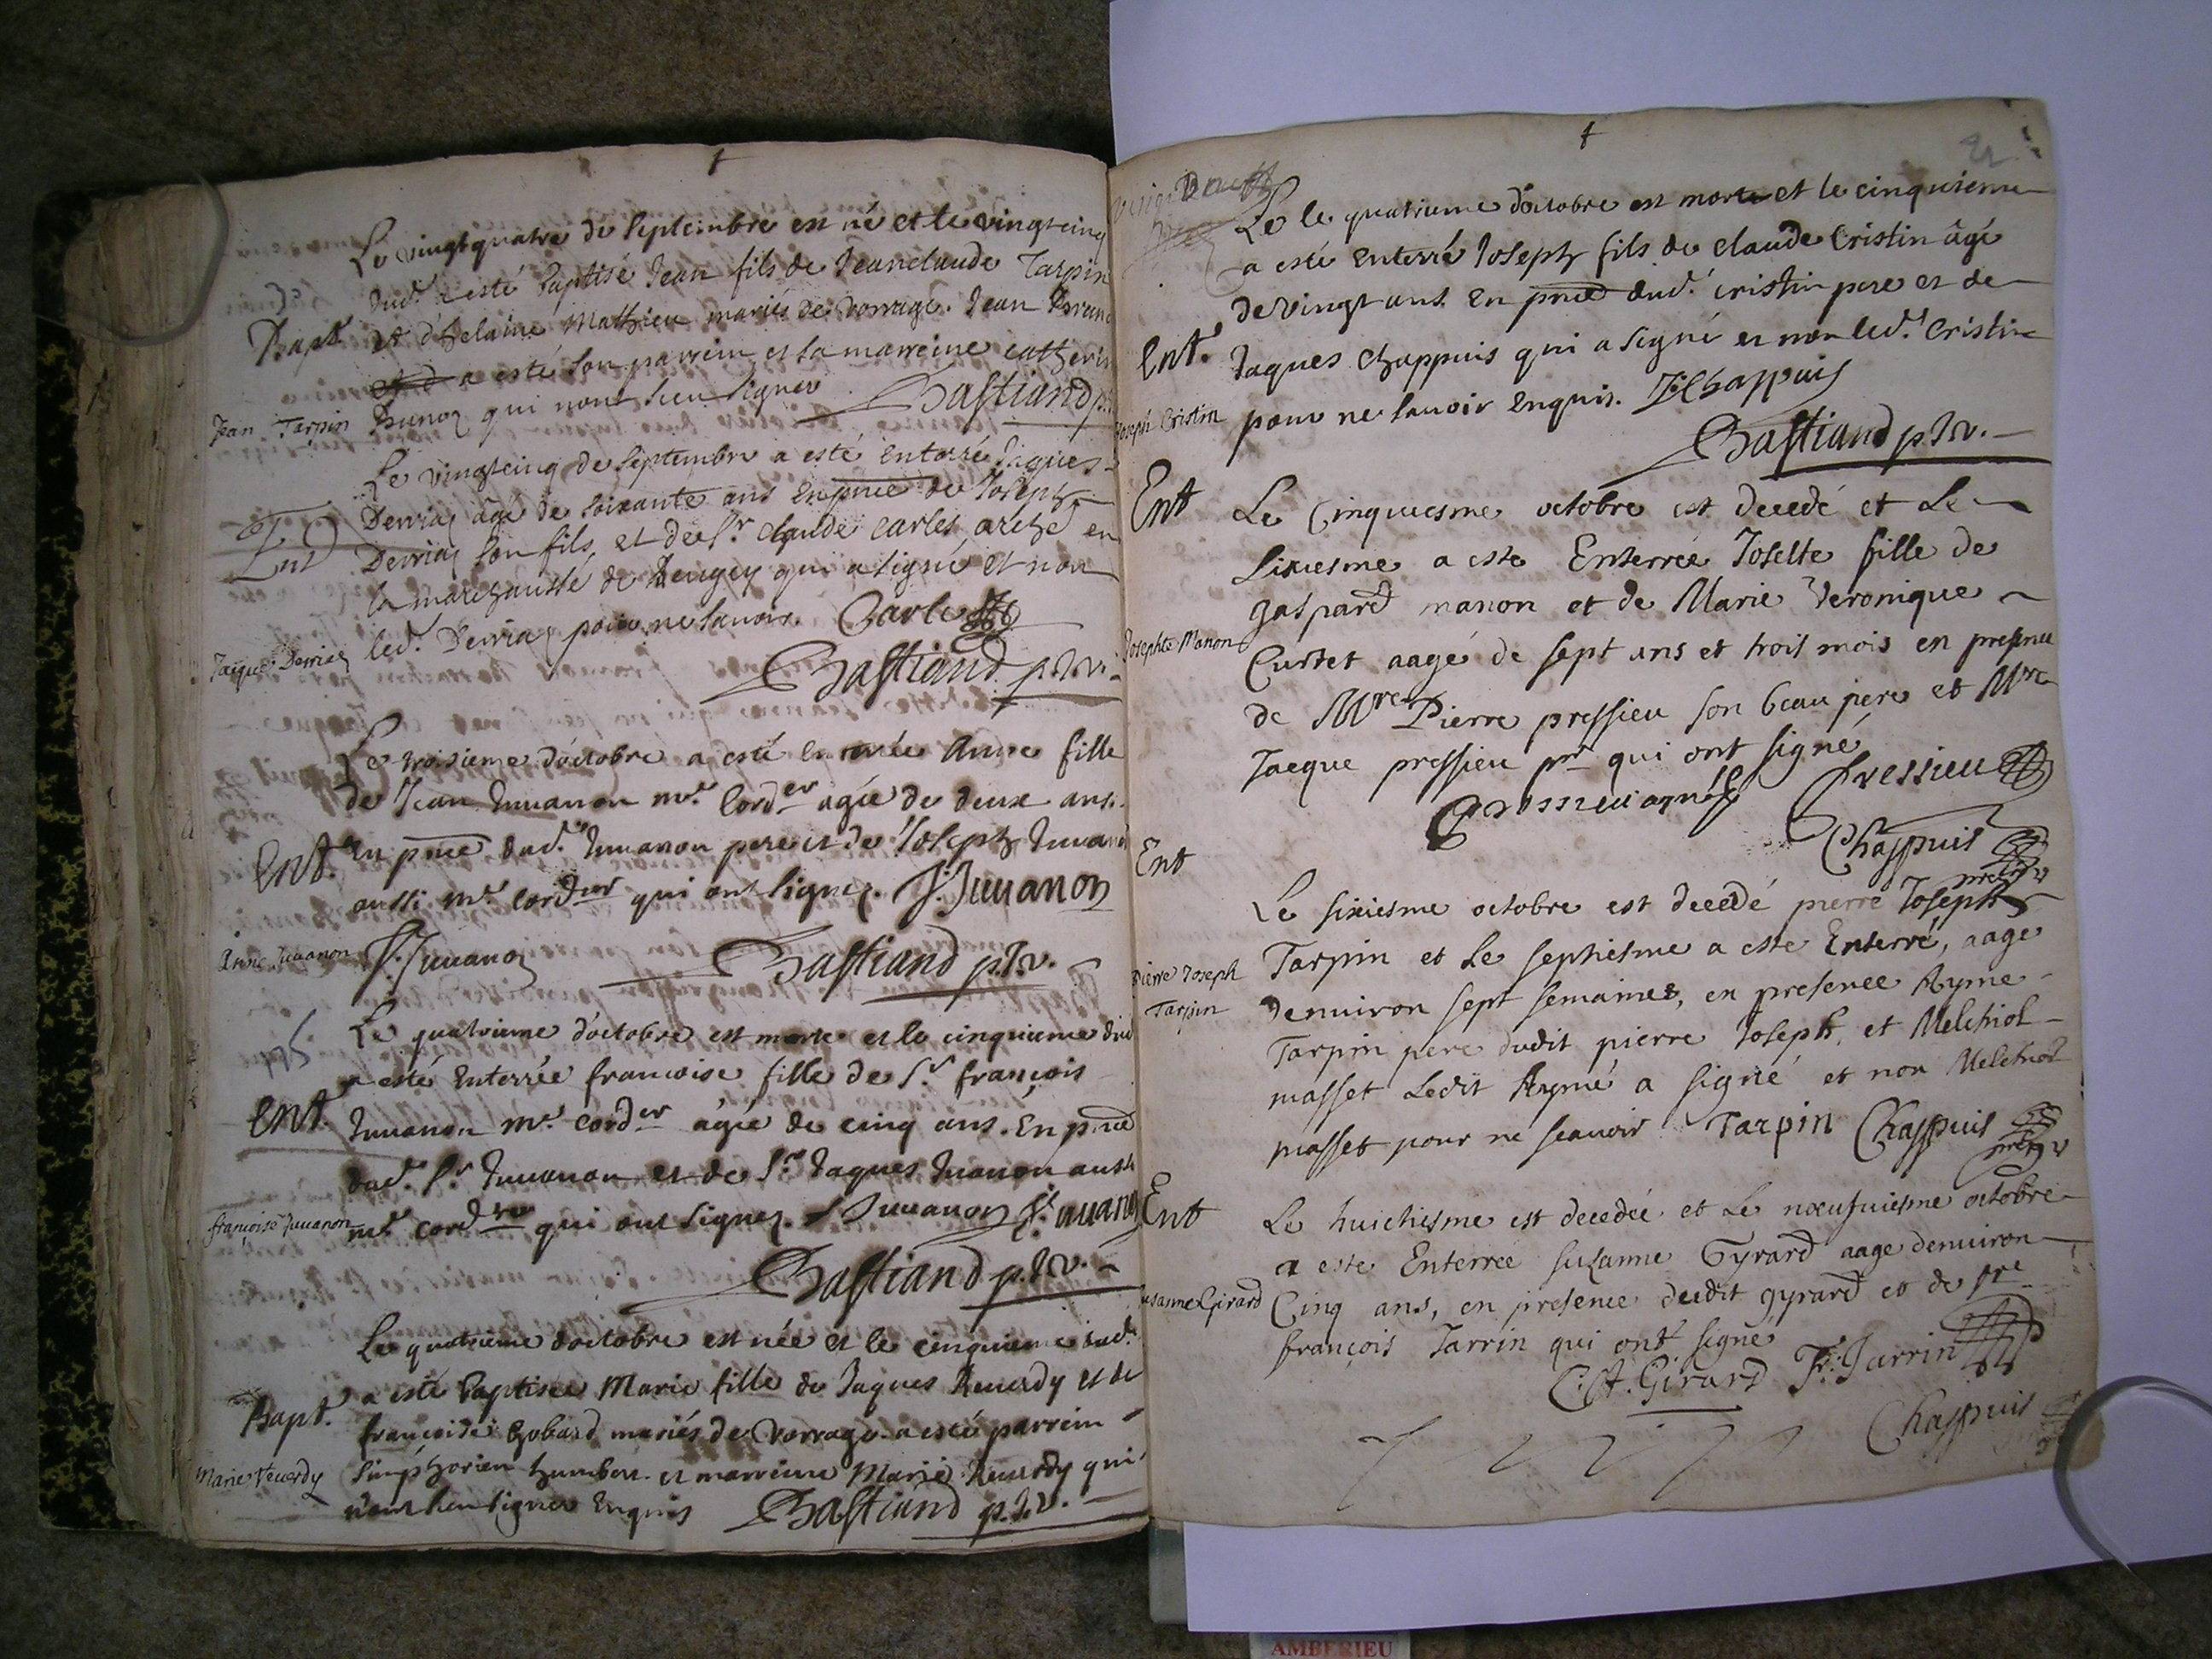 Le vingt quatre de Septembre est né et le vingtcinq
dud. a esté baptisé Jean fils de Jeanclaude Tarpin
Bapt. et d'helaine Mathieu mariés de vorrage. Jean
a esté son parrein et sa marreine catherin
Jean Tarpin
qui nont sceu signer Bastiand p.
Le vingtcinq de septembre a esté enterré Jaques
Ent
Derriaz âgé de soixante ans en pnce de Joseph
Derriaz son fils, et de Sr. claude carles, arché en
la marechaussé de beugey qui a signé et non
Jaques Derriaz
led. Derriaz pour ne savoir. Carle
Bastiand p.tr.v.
Le troisieme d'octobre a esté enterrée Anne fille
de Jean Juuanon mr. corder agée de deux ans.
Ent. en pnce dud. Juuanon pere et de Joseph Juuanon
aussi mr. corder qui ont signez. J. Juuanon
Anne Juuanon
J. Juuanon Bastiand p.tr.v.
Le quatrieme d'octobre est morte et le cinquieme dud
a esté enterrée francoise fille de Sr. françois
Ent. Juuanon mr. corder âgée de cinq ans. En pnce
dud. Sr. Juuanon et de Sr. Jaques Juuanon aussi
françoise Juuanon
mr. corder qui ont signez. Juuanon
Bastiand p.tr.v.
Le quatrieme doctobre est née et le cinquieme dud.
Bapt. a esté baptisée Marie fille de Jaques Reuerdy et de
francoise gobard mariés de vorrage. a esté parrein
Marie Reuerdy
simphorien humbert et marreine Marie Reuerdy qui
n'ont sceu signer enquis Bastiand p.tr.v.
Le le quatrieme d'octobre est mort et le cinquieme
a esté enterré Joseph fils de claude Cristin âgé
de vingt ans. En pnce dud. cristin pere et de
Ent. Jaques Chappuis qui a signé et non led. Cristin
Joseph Cristin
pour ne savoir enquis. J. Chappuis
Bastiand p.tr.v.
Ent
Le Cinquiesme octobre est decedé et Le
sixiesme a este Enterrée Joselte fille de
gaspard manon et de Marie Veronique
Josephte Manon
Curtet aagé de sept ans et trois mois en presence
de Mre Pierre pressieu son beau pere et Mre
Jacque pressieu pr qui ont signé
Pressieu
Chappuis
Ent
Le sixiesme octobre est decedé pierre Joseph
Tarpin et Le septiesme a este Enterré, aage
Pierre Joseph
Tarpin
denuiron sept semaines, en presence Ayme
Tarpin pere dudit pierre Joseph, et Melchiol
masset Ledit Aymé a signé et non Melchiol
masset pour ne scauoir Tarpin Chappuis
Ent
Le huictiesme est decedée et Le nœufuiesme octobre
a este Enterree suzanne Gyrard aage denuiron
Susanne Girard
Cinq ans, en presence dudit gyrard et de
françois Jarrin qui ont signé
C. A. Girard Fr. Jarrin
Chappuis
AMBERIEU